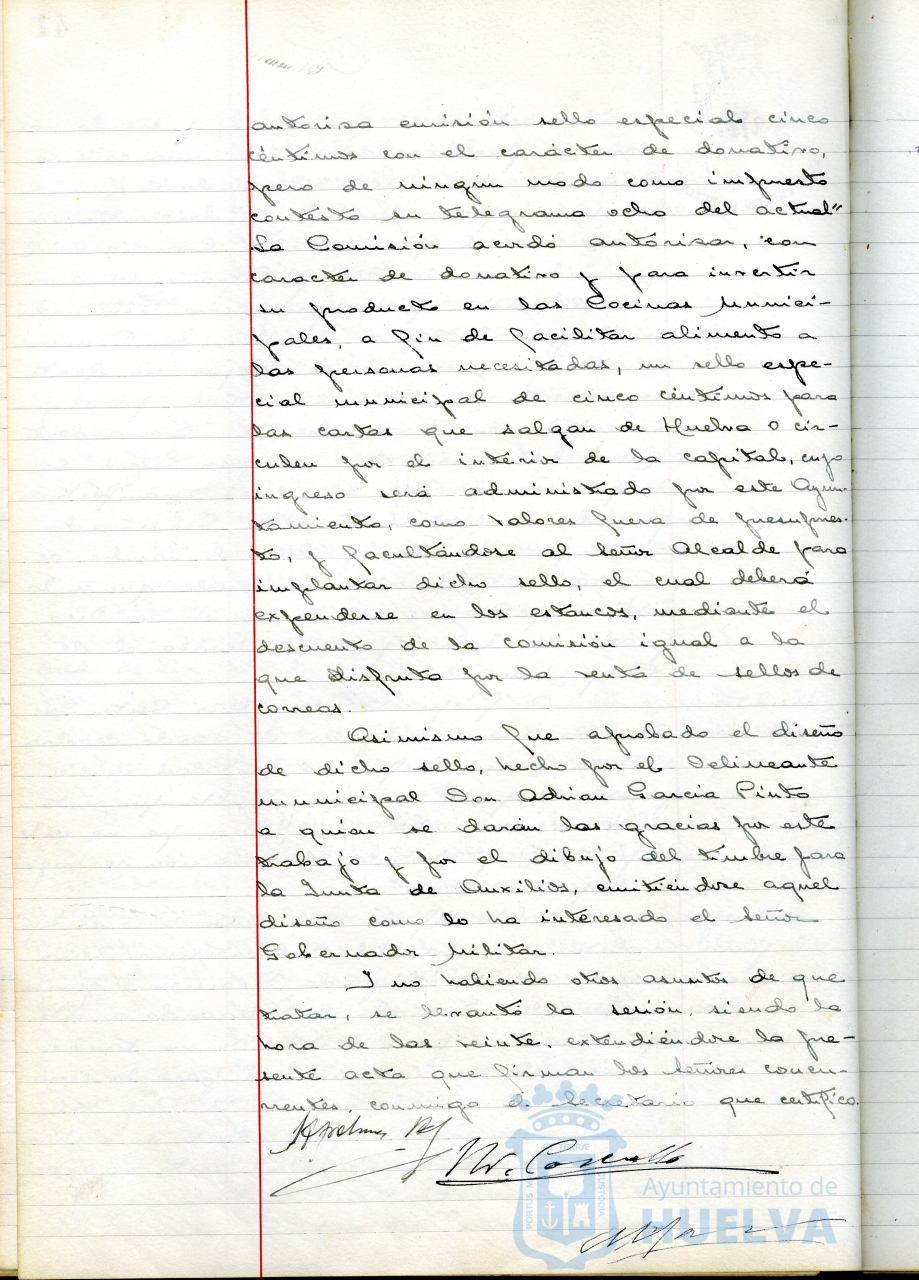 autorisa emisión sello especial cinco
céntimos con el carácter de donativo,
pero de ningun modo como impuesto
contesto su telegrama ocho del actual"
La Comisión acordó autorisar, con
caracter de donativo y para invertir
su producto en las Cocinas Munici-
pales, a fin de facilitar alimento a
las personas necesitadas, un sello espe-
cial municipal de cinco céntimos para
las cartas que salgan de Huelva o cir-
culen por el interior de la capital, cuyo
ingreso será administrado por este Ayun-
tamiento, como valores fuera de presupues-
to, y facultándose al Señor Alcalde para
implantar dicho sello, el cual deberá
expenderse en los estancos, mediante el
descuento de la comisión igual a la
que disfruta por la venta de sellos de
correos.
Asimismo fue aprobado el diseño
de dicho sello, hecho por el Delineante
municipal Don Adrian Garcia Pinto
a quien se darán las gracias por este
trabajo y por el dibujo del timbre para
la Junta de Auxilios, emitiéndose aquel
diseño como lo ha interesado el Señor
Gobernador Militar.
I no habiendo otros asuntos de que
tratar, se levantó la sesión, siendo la
hora de las veinte, extendiéndose la pre-
sente acta que firman los Señores concu-
rrentes, conmigo el Secretario que certifico.
PORTUS
CUSTODIA
Ayuntamiento de
HUELVA